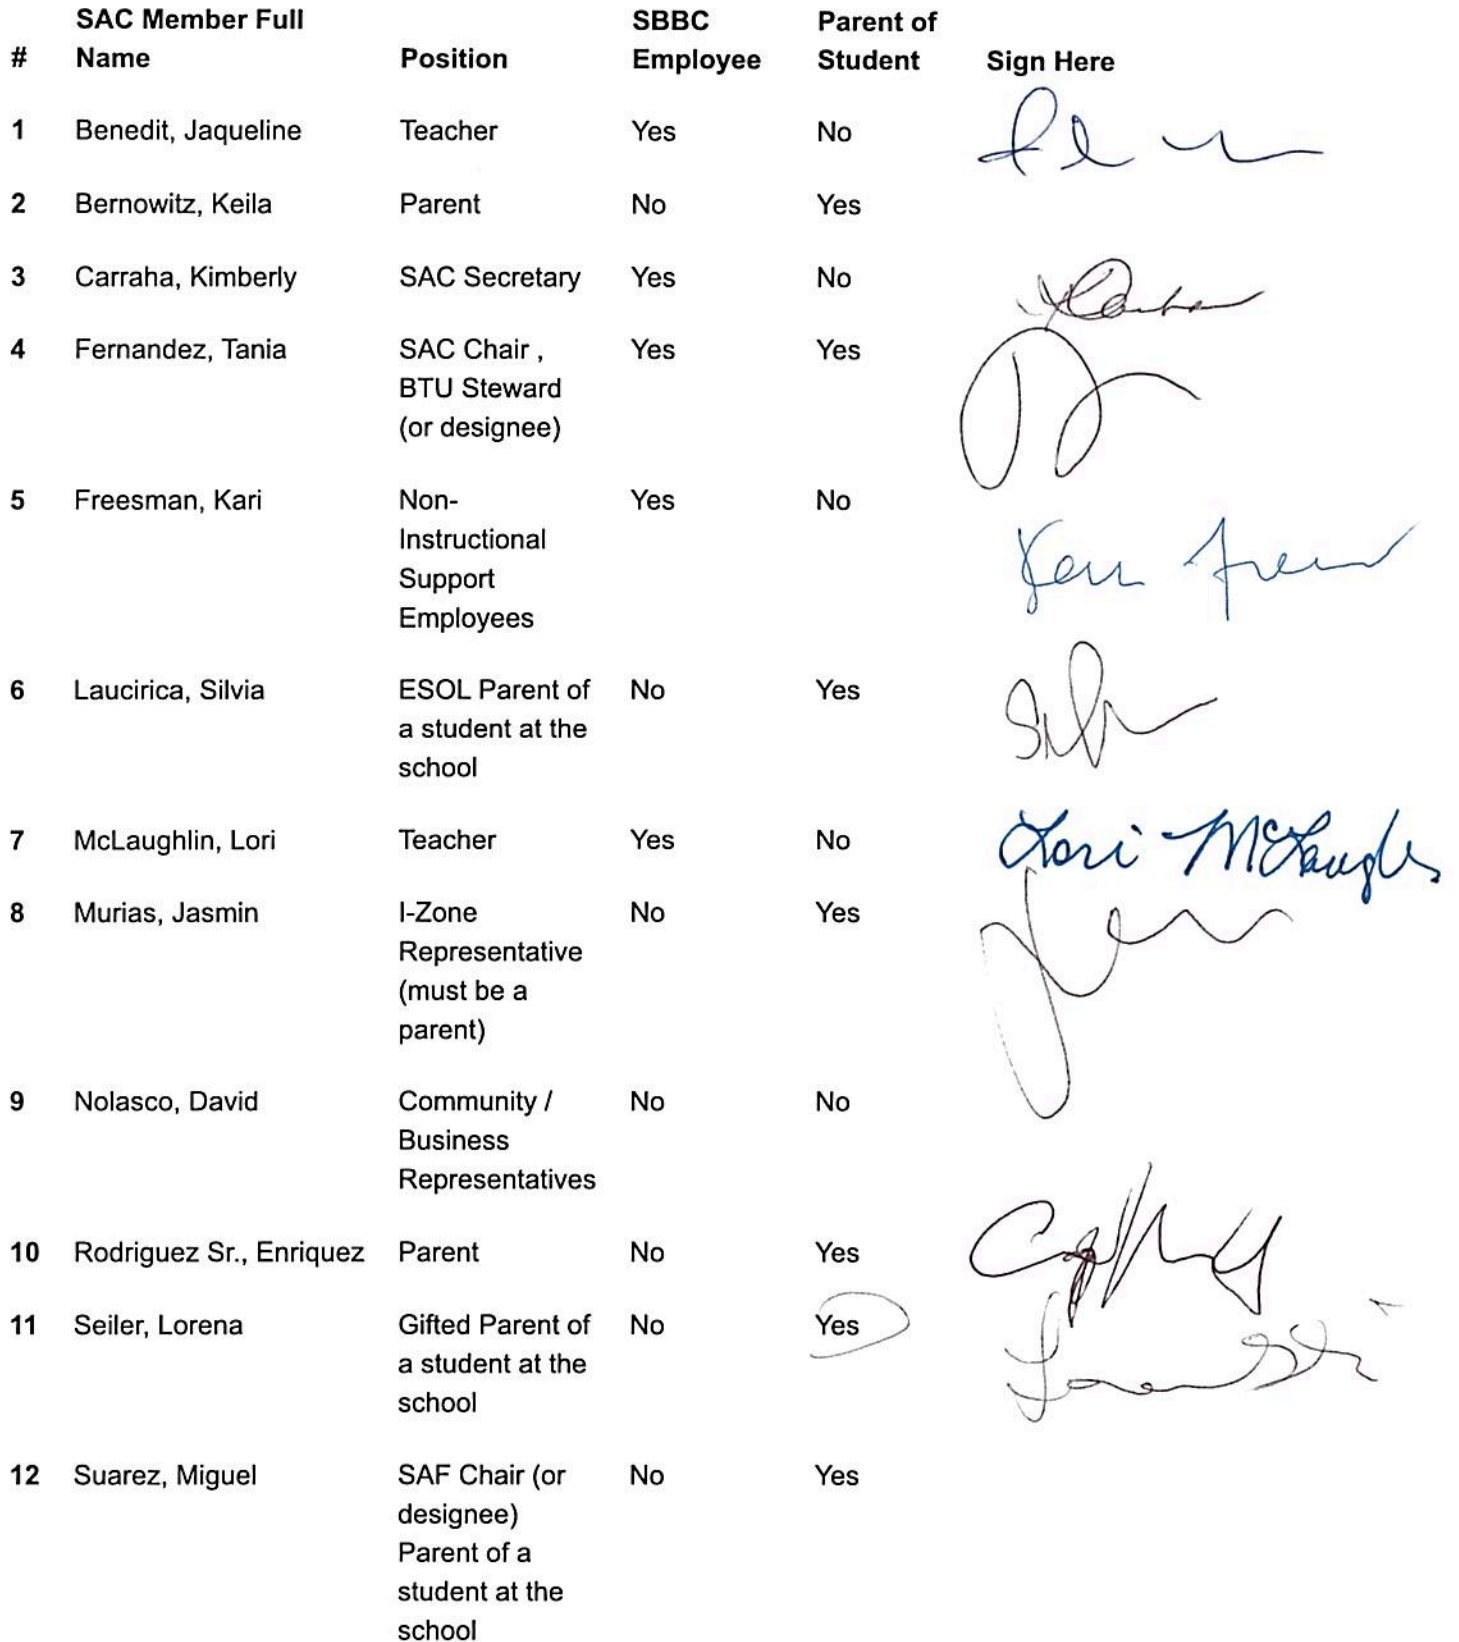 # SAC Member Full Name Position SBBC Employee Parent of Student Sign Here
1 Benedit, Jaqueline Teacher Yes No
2 Bernowitz, Keila Parent No Yes
3 Carraha, Kimberly SAC Secretary Yes No
4 Fernandez, Tania SAC Chair , Yes Yes
BTU Steward
(or designee)
5 Freesman, Kari Non- Yes No
Instructional
Support
Employees
6 Laucirica, Silvia ESOL Parent of No Yes
a student at the
school
7 McLaughlin, Lori Teacher Yes No Lori
8 Murias, Jasmin I-Zone No Yes
Representative
(must be a
parent)
9 Nolasco, David Community / No No
Business
Representatives
10 Rodriguez Sr., Enriquez Parent No Yes
11 Seiler, Lorena Gifted Parent of No Yes
a student at the
school
12 Suarez, Miguel SAF Chair (or No Yes
designee)
Parent of a
student at the
school